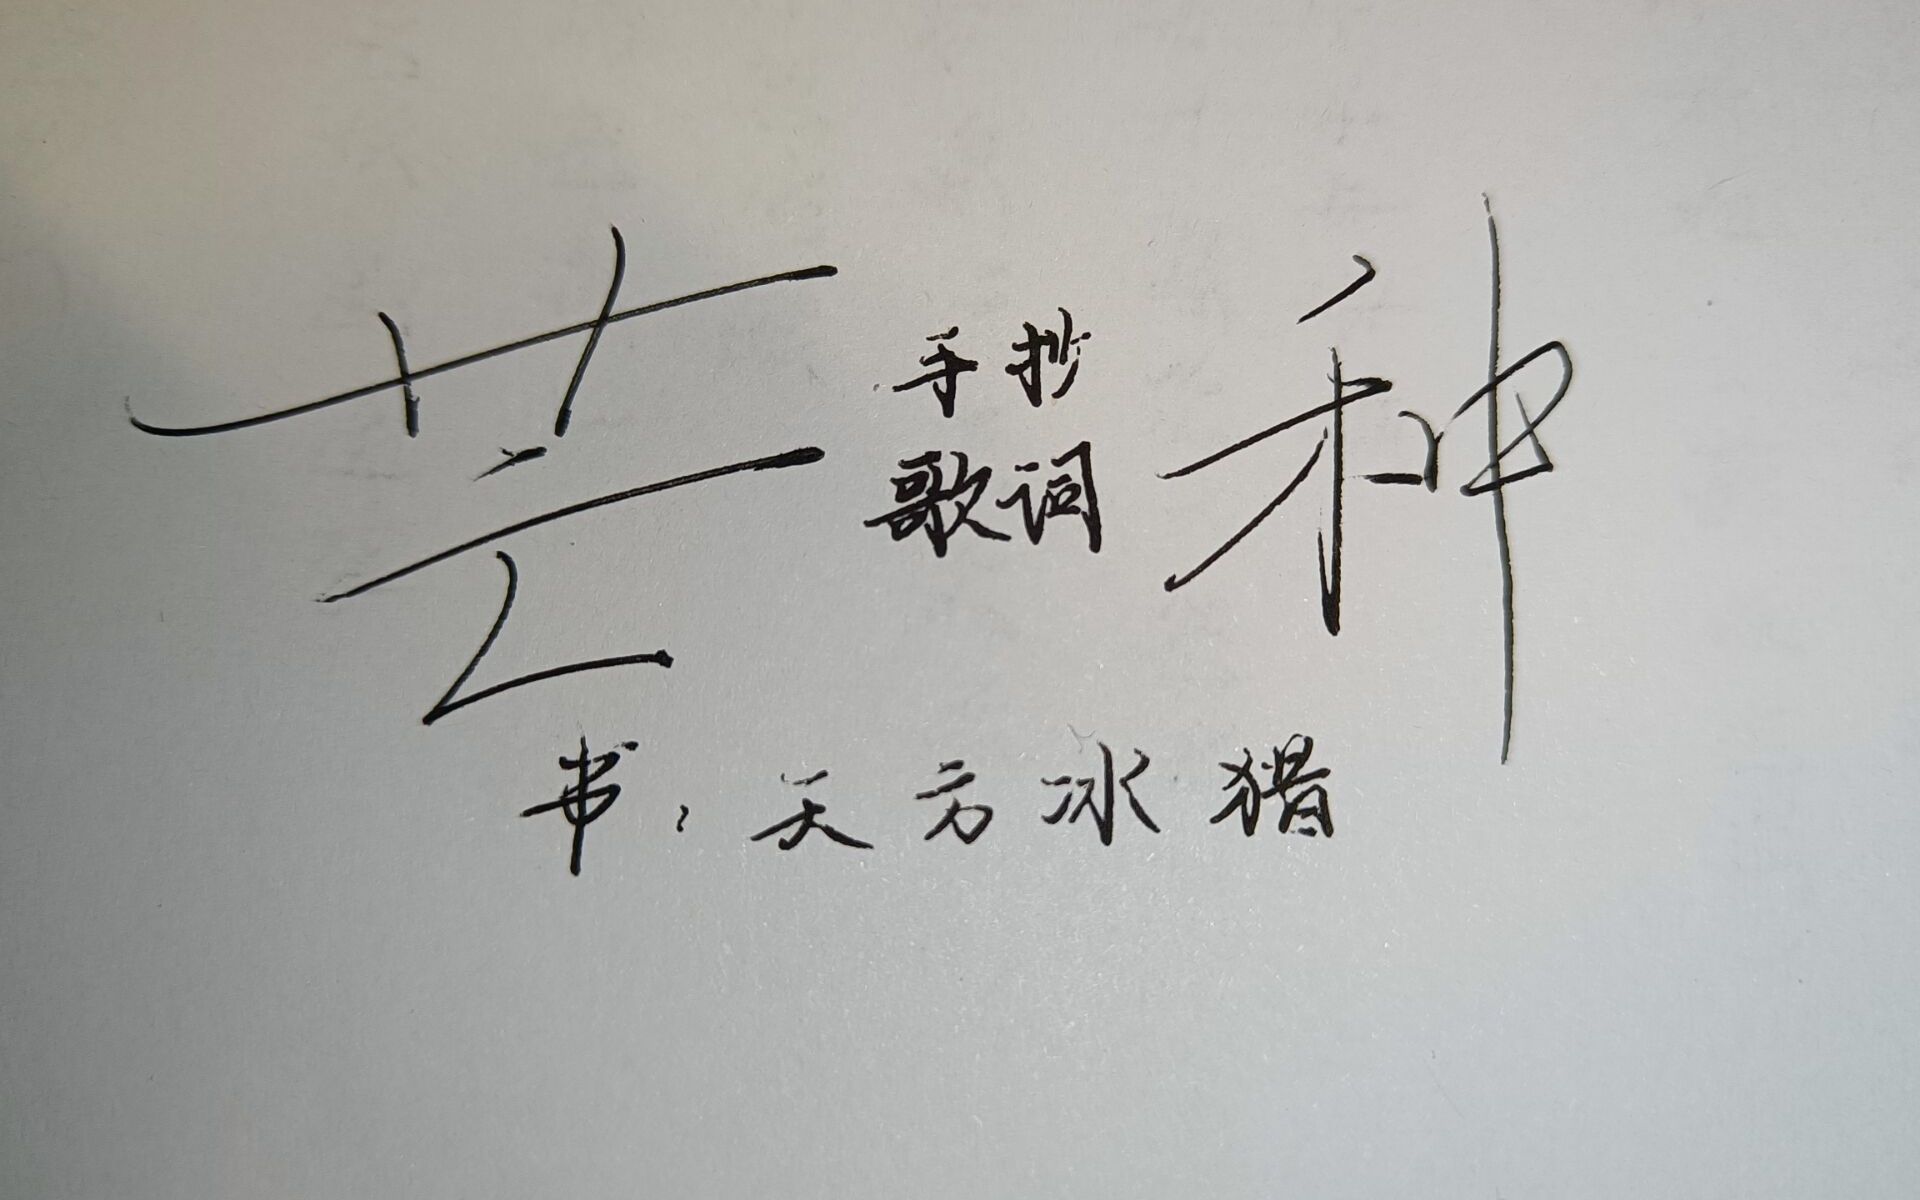 芒种
手抄
歌词
书:天方冰猎